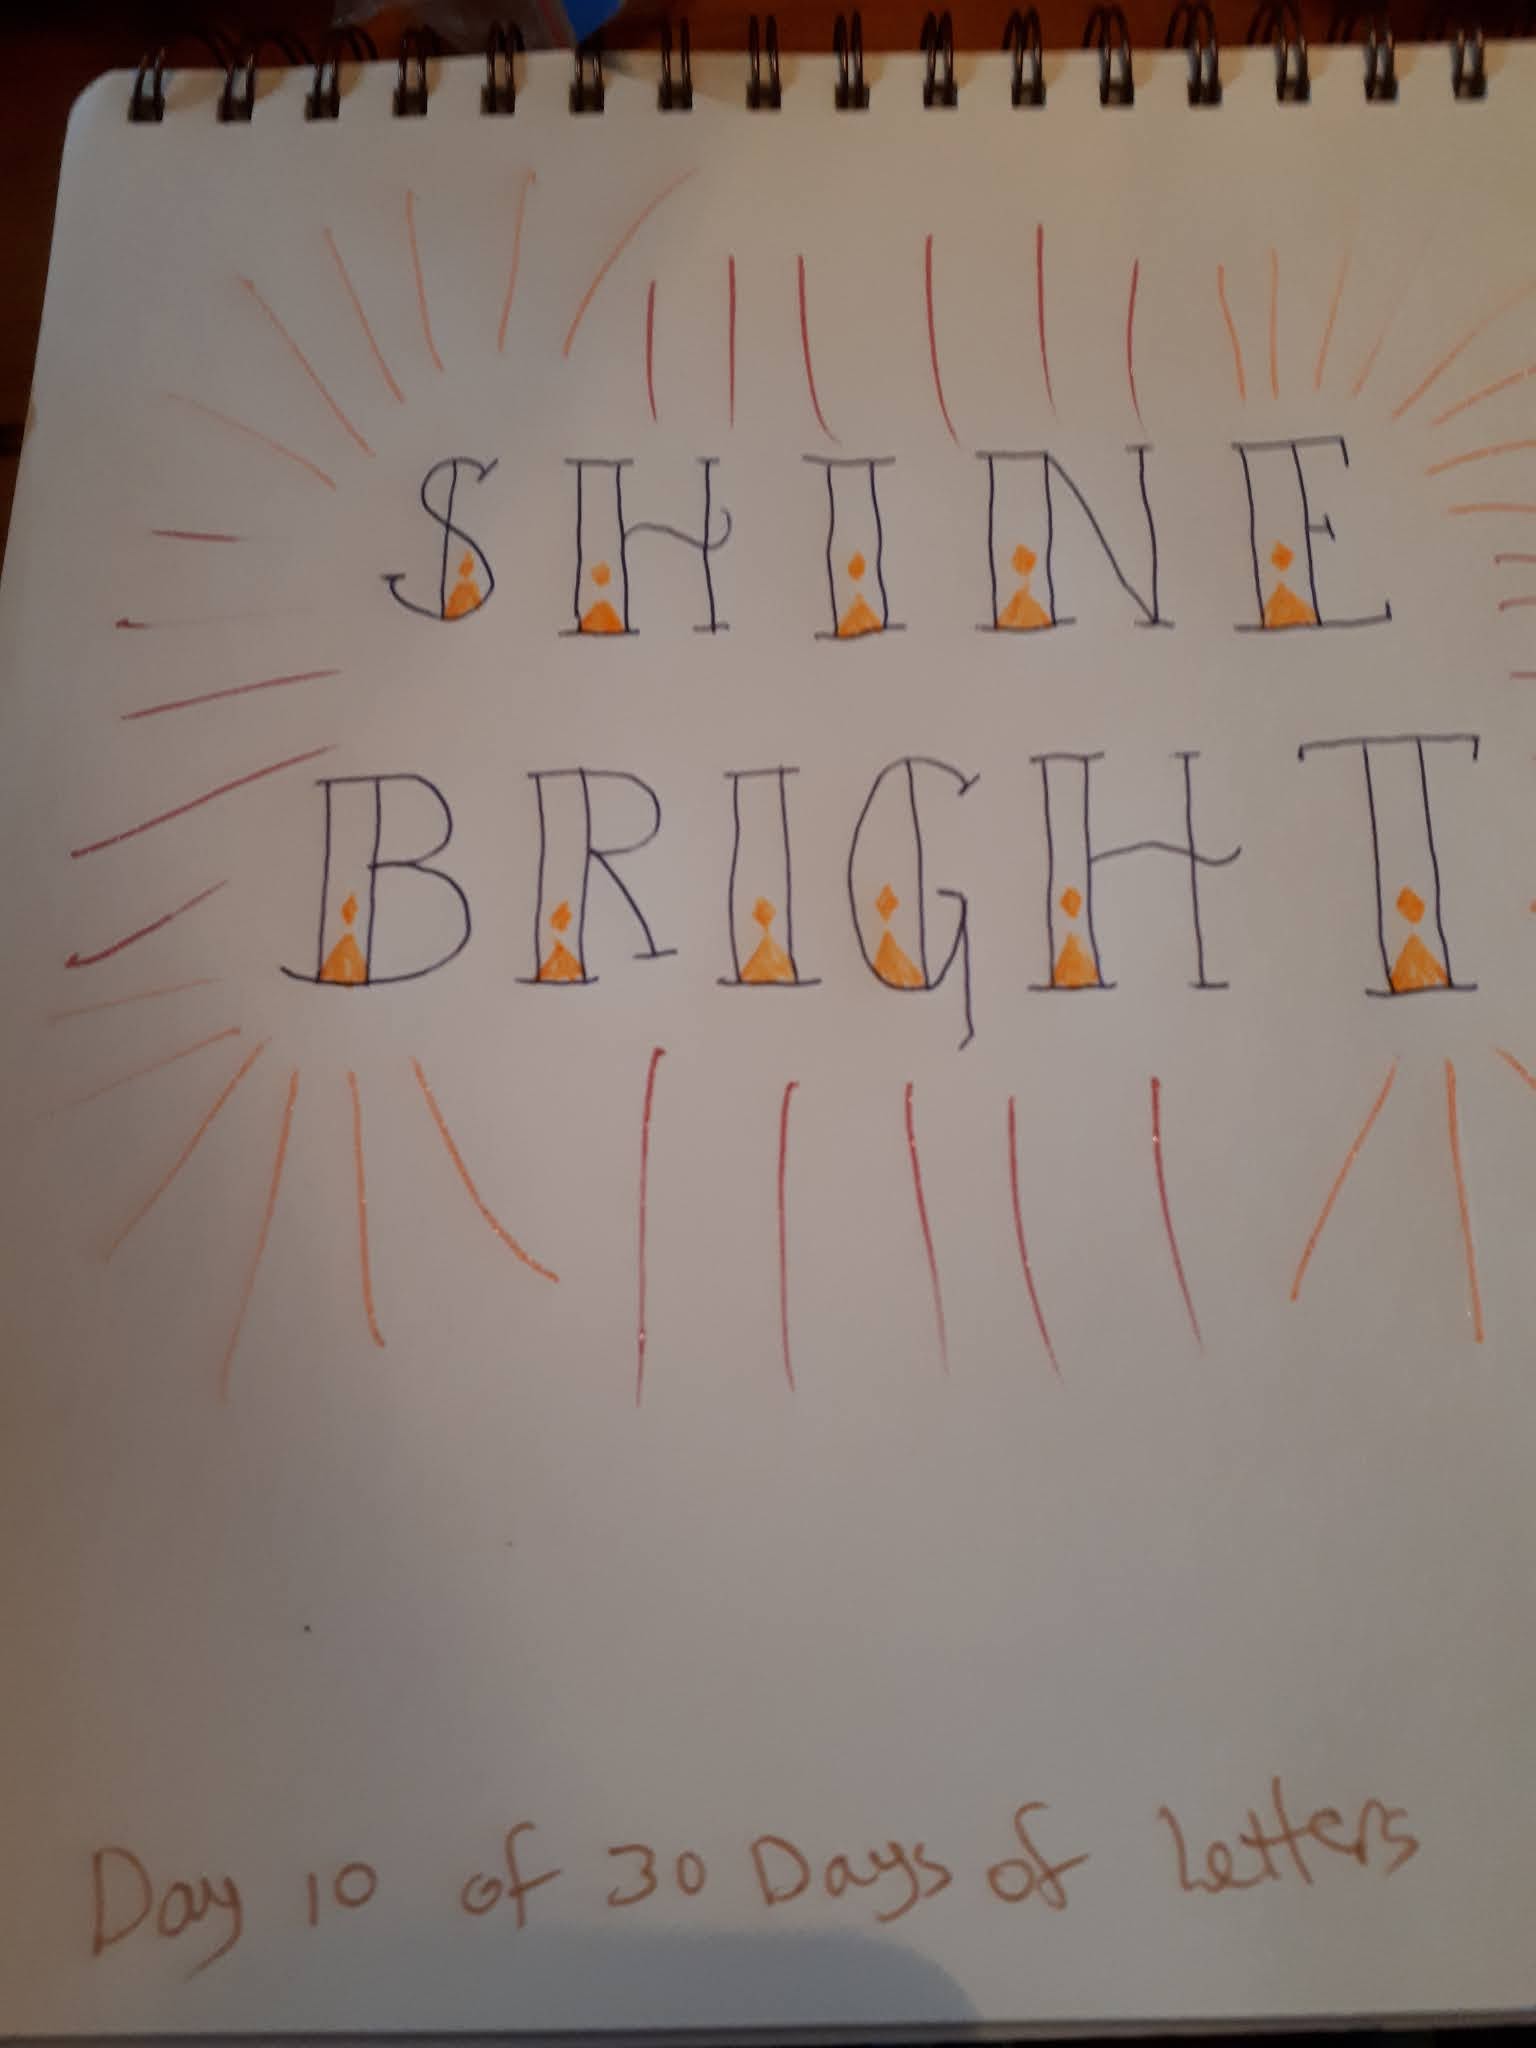 SHINE
BRIGHT
Day 10 of 30 Days of Letters